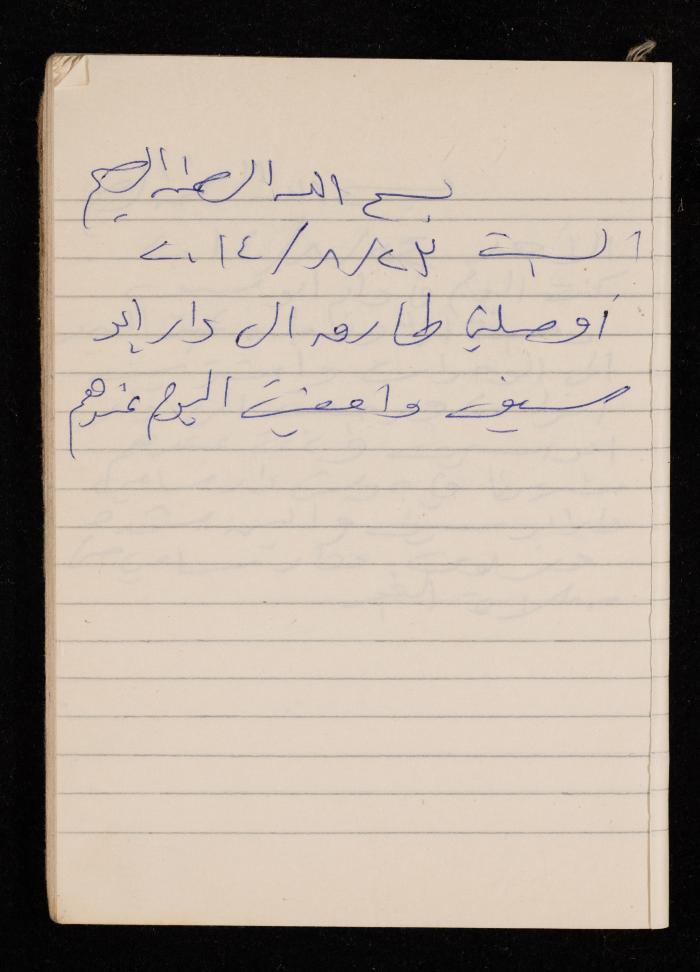 بسم الله الرحمن الرحيم
السبت ٢٣/٨/٢٠١٤
أوصلني طارق الى دار ابو
سيف وامضيت اليوم عندهم